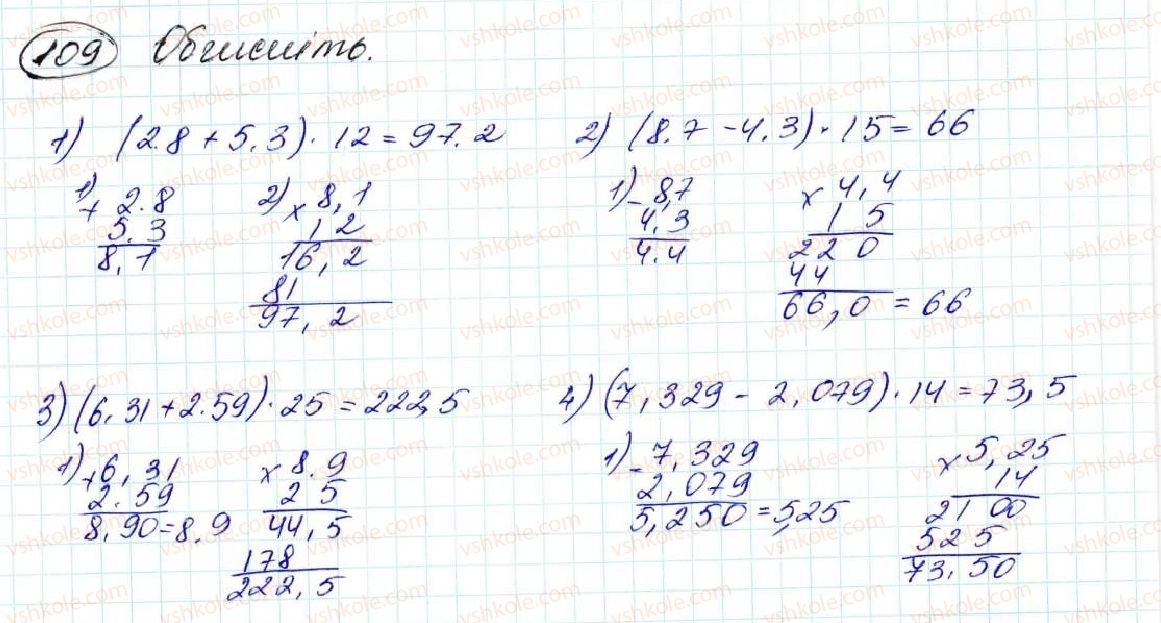 109 Обчисліть.
1) (2.8 + 5.3) · 12 = 97.2
1) + 2.8
5.3
8,1
2) x 8,1
12
16,2
81
97,2
2) (8.7 - 4.3) · 15 = 66
1) - 8,7
4,3
4.4
x 4,4
15
220
44
66,0 = 66
3) (6,31 + 2.59) · 25 = 222,5
1) + 6,31
2.59
8,90 = 8.9
x 8.9
25
44,5
178
222,5
4) (7,329 - 2,079) · 14 = 73,5
1) - 7,329
2,079
5,250 = 5,25
x 5,25
14
2100
525
73,50